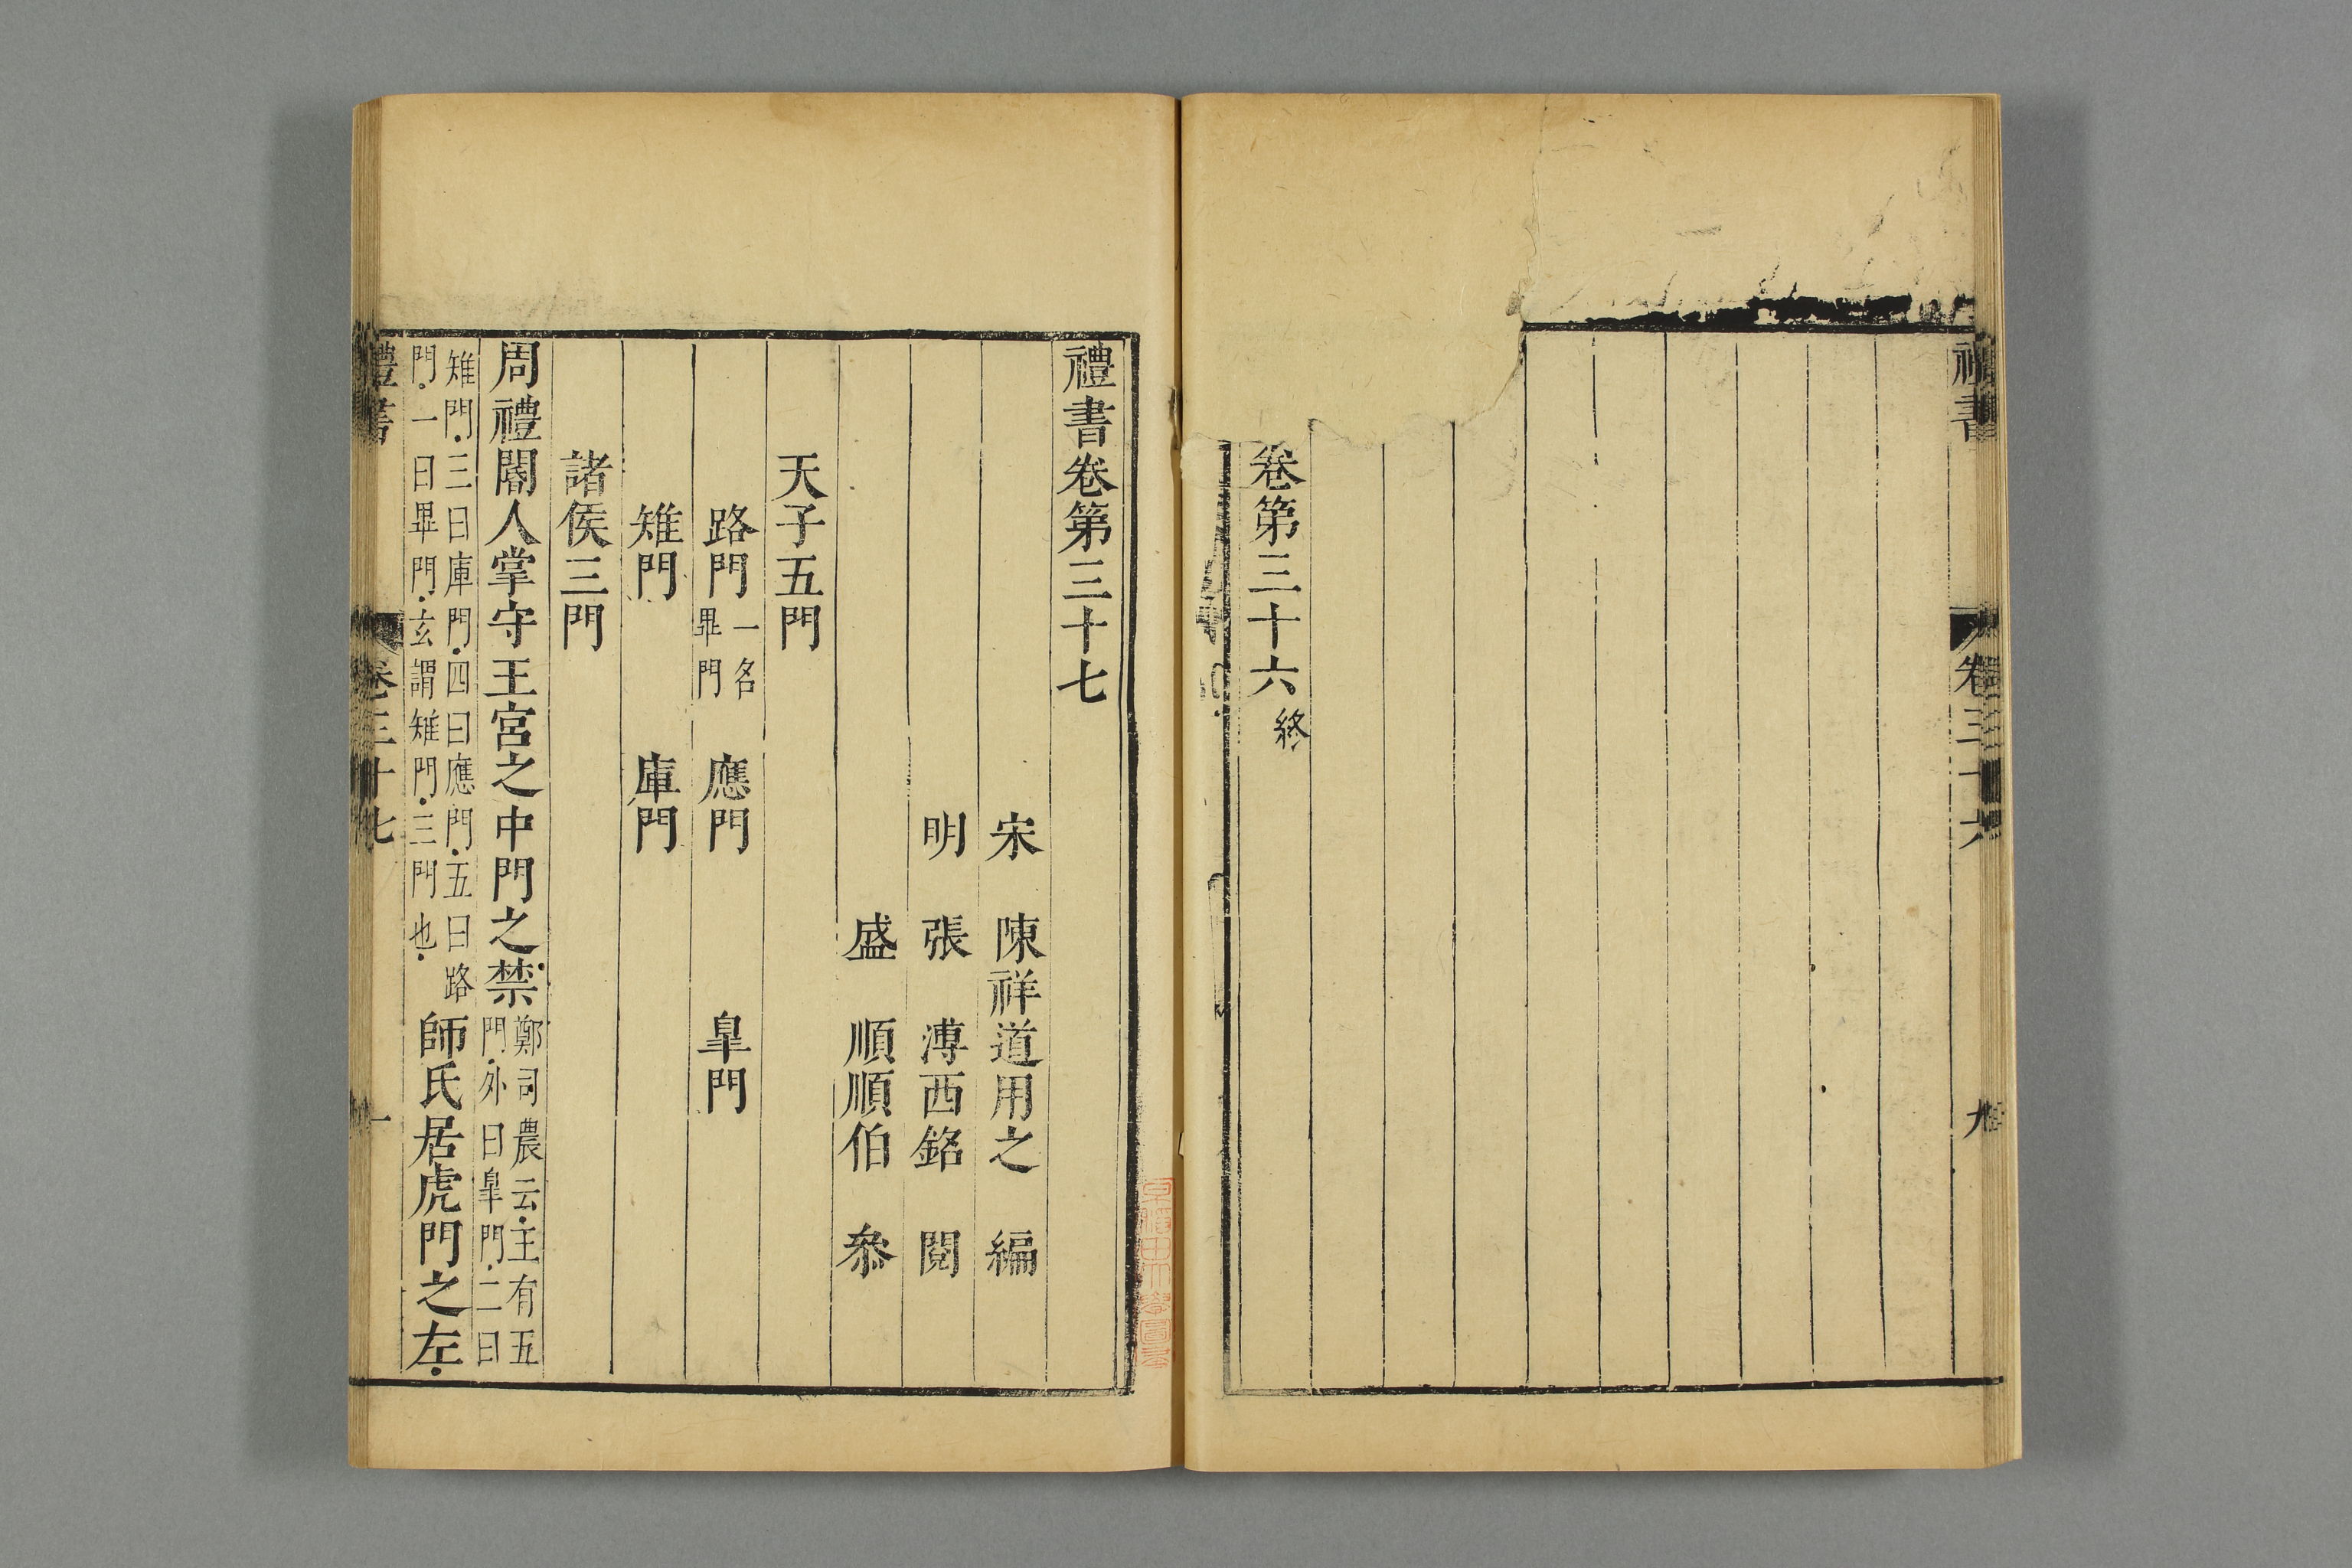 卷第三十六終
禮書卷第三十七
宋　陳祥道用之　編
明　張　溥西銘　閱
盛　順順伯　叅
天子五門
路門一名畢門　應門　臯門
雉門　庫門
諸侯三門
周禮閽人掌守王宮之中門之禁鄭司農云主有五門外曰臯門二曰
雉門三曰庫門四曰應門五曰路門一曰畢門玄謂雉門三門也師氏居虎門之左
禮書　卷三十七　一
禮書　卷三十六　九